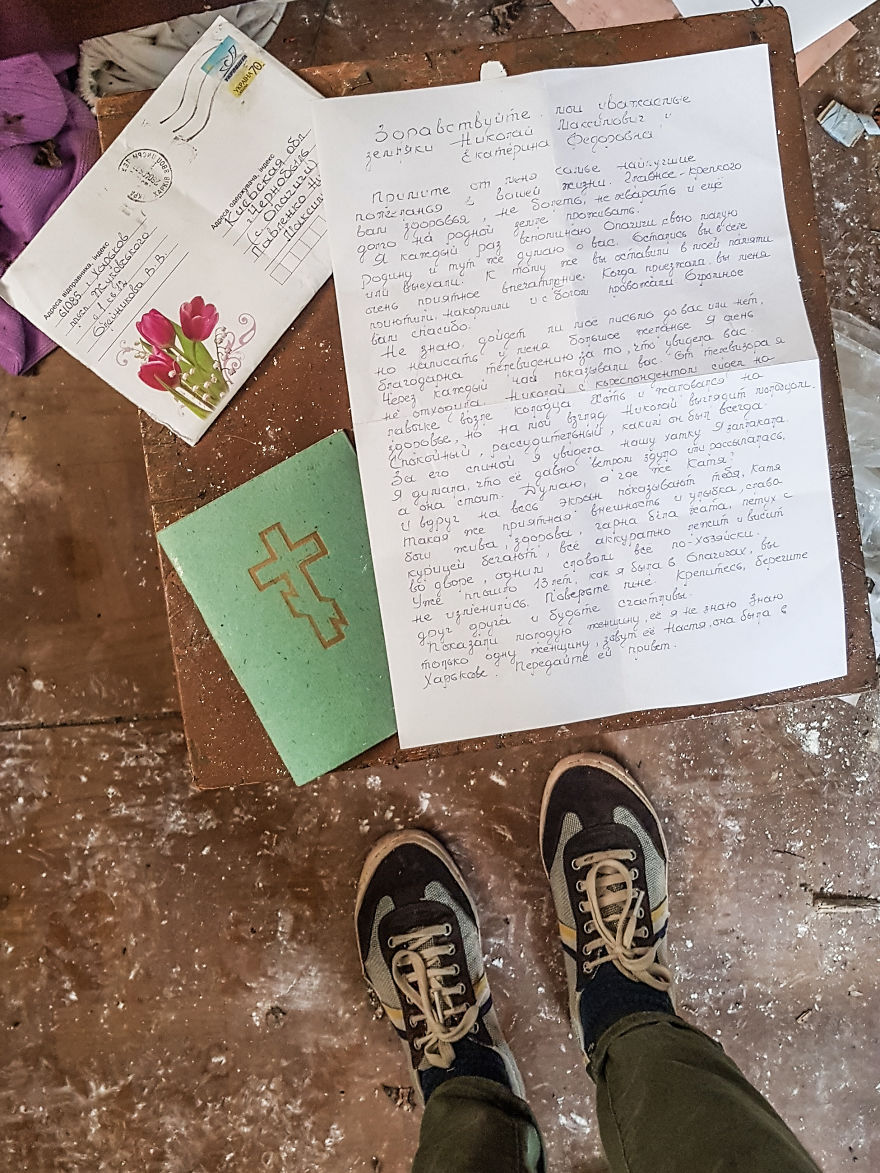 УКРАЇНА 70
Адреса відправника, індекс
61085 г. Харьков
Жуковского
В.В.
Адреса одержувача, індекс
Киевская обл
г. Чернобыль
(с. Опачичи)
Павленко Н
Максим
Здравствуйте мои уважаемые
земляки Николай Максимович и
Екатерина Федоровна
Примите от меня самые найлучшие
пожеланья в вашей жизни. Главное - крепкого
вам здоровья, не болеть, не хварать и ещё
долго на родной земле проживать.
Я каждый раз вспоминаю Опачичи свою малую
родину и тут же думаю о вас. Остались вы в селе
или выехали. К тому же вы оставили в моей памяти
очень приятное впечатление. Когда приезжала, вы меня
приютили, накормили и с богом провожали. Огромное
вам спасибо.
Не знаю, дойдет ли моё письмо до вас или нет,
но написать у меня большое желанье. Я очень
благодарна телевиденью за то, что увидела вас.
Через каждый час показывали вас. От телевизора я
не отходила. Николай с кореспондентом сидел на
лавочке возле колодца. Хоть и жаловался на
здоровье, но на мой взгляд Николай выглядит молодцом.
Спокойный, рассудительный, каким он был всегда.
За его спиной я увидела нашу хатку. Я заплакала.
Я думала, что её давно ветром здуло или рассыпалась,
а она стоит. Думаю, а где же Катя?
И вдруг на весь экран показывают тебя, Катя
Такая же приятная внешность и улыбка, слава
богу жива, здорова, гарна біла хата, петух с
курицей бегают, всё аккуратно лежит и висит
во дворе, одним словом все по-хозяйски.
Уже прошло 13 лет, как я была в Опачичах, вы
не изменились. Поверьте мне. Крепитесь, берегите
друг друга и будьте счастливы.
Показали молодую женщину, её я не знаю. Знаю
только одну женщину, зовут её Настя, она была в
Харькове. Передайте ей привет.